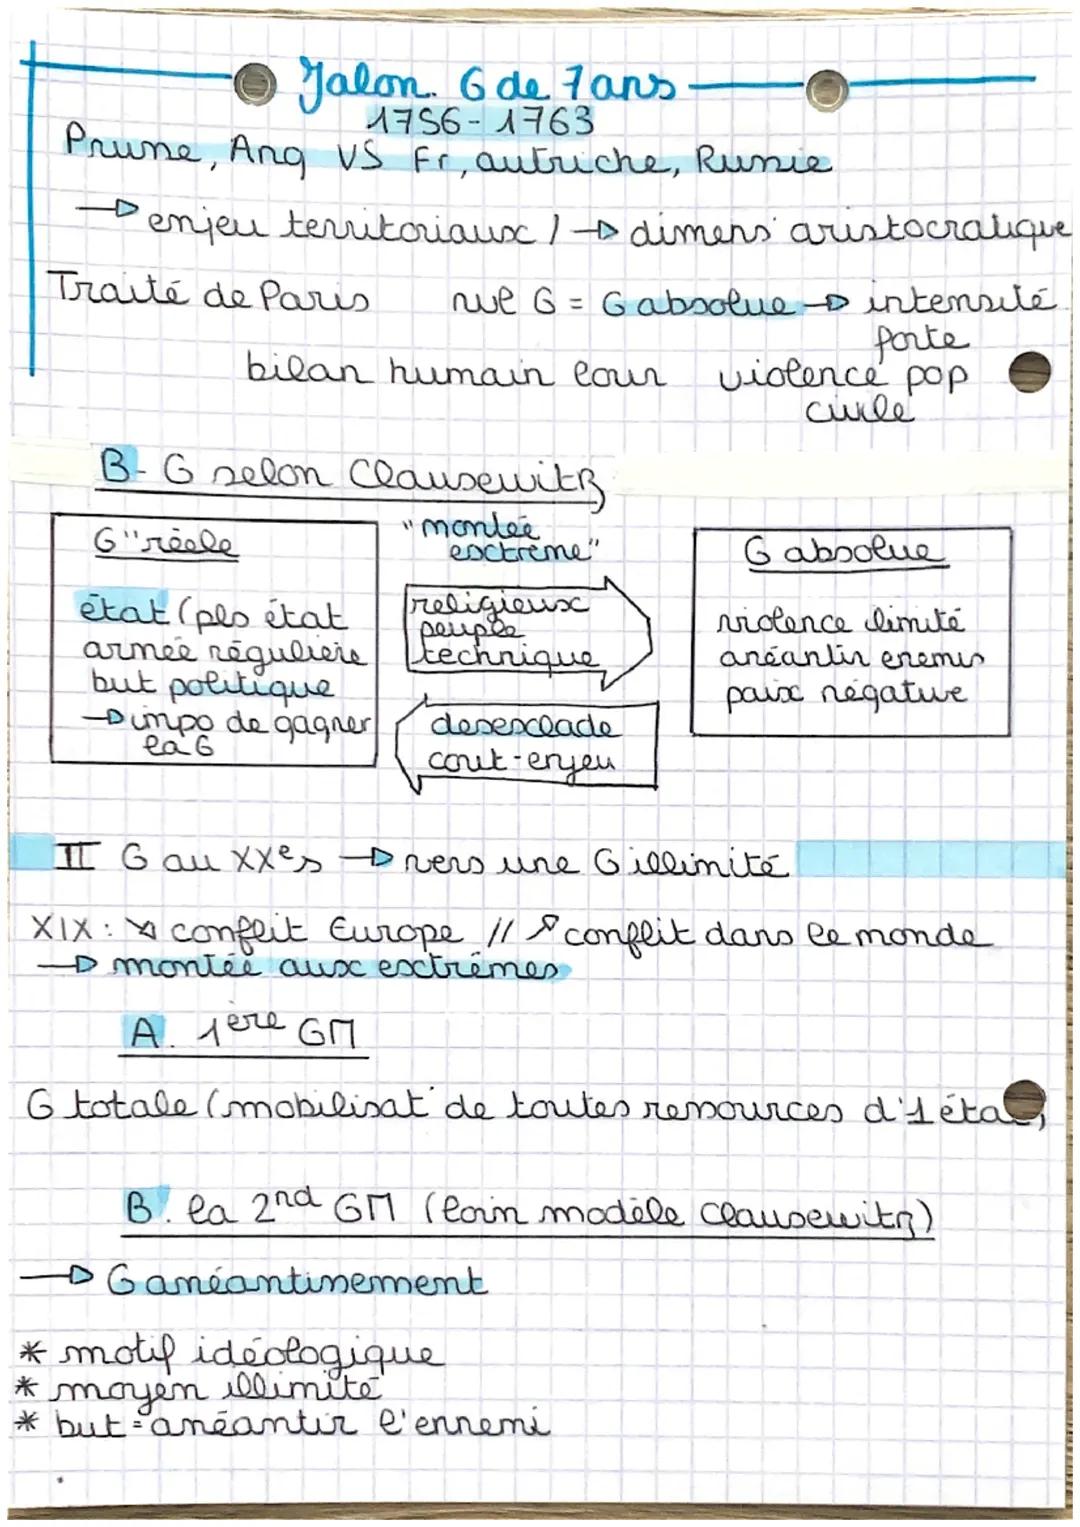 Jalon. G de 7 ans
1756-1763
Prusse, Ang VS Fr, autriche, Russie
→ enjeu territoriaux / → dimens° aristocratique
Traité de Paris nvl G = G absolue → intensité forte
bilan humain lour violence pop civile
B- G selon Clausewitz
G "réele
état (pls état
armée régulière
but politique
→ impo de gagner
la G
"montée
extrême"
religieux
peuple
technique
desesclade
cout-enjeu
G absolue
violence limité
anéantir enemis
paix négative
II G au XXes → vers une G illimité
XIX: ↘ conflit Europe // ↗ conflit dans le monde
→ montée aux extrêmes
A. 1ère GM
G totale (mobilisat° de toutes ressources d'1 état)
B. la 2nd GM (loin modèle Clausewitz)
→ G anéantissement
* motif idéologique
* moyen illimité
* but = anéantir l'ennemi